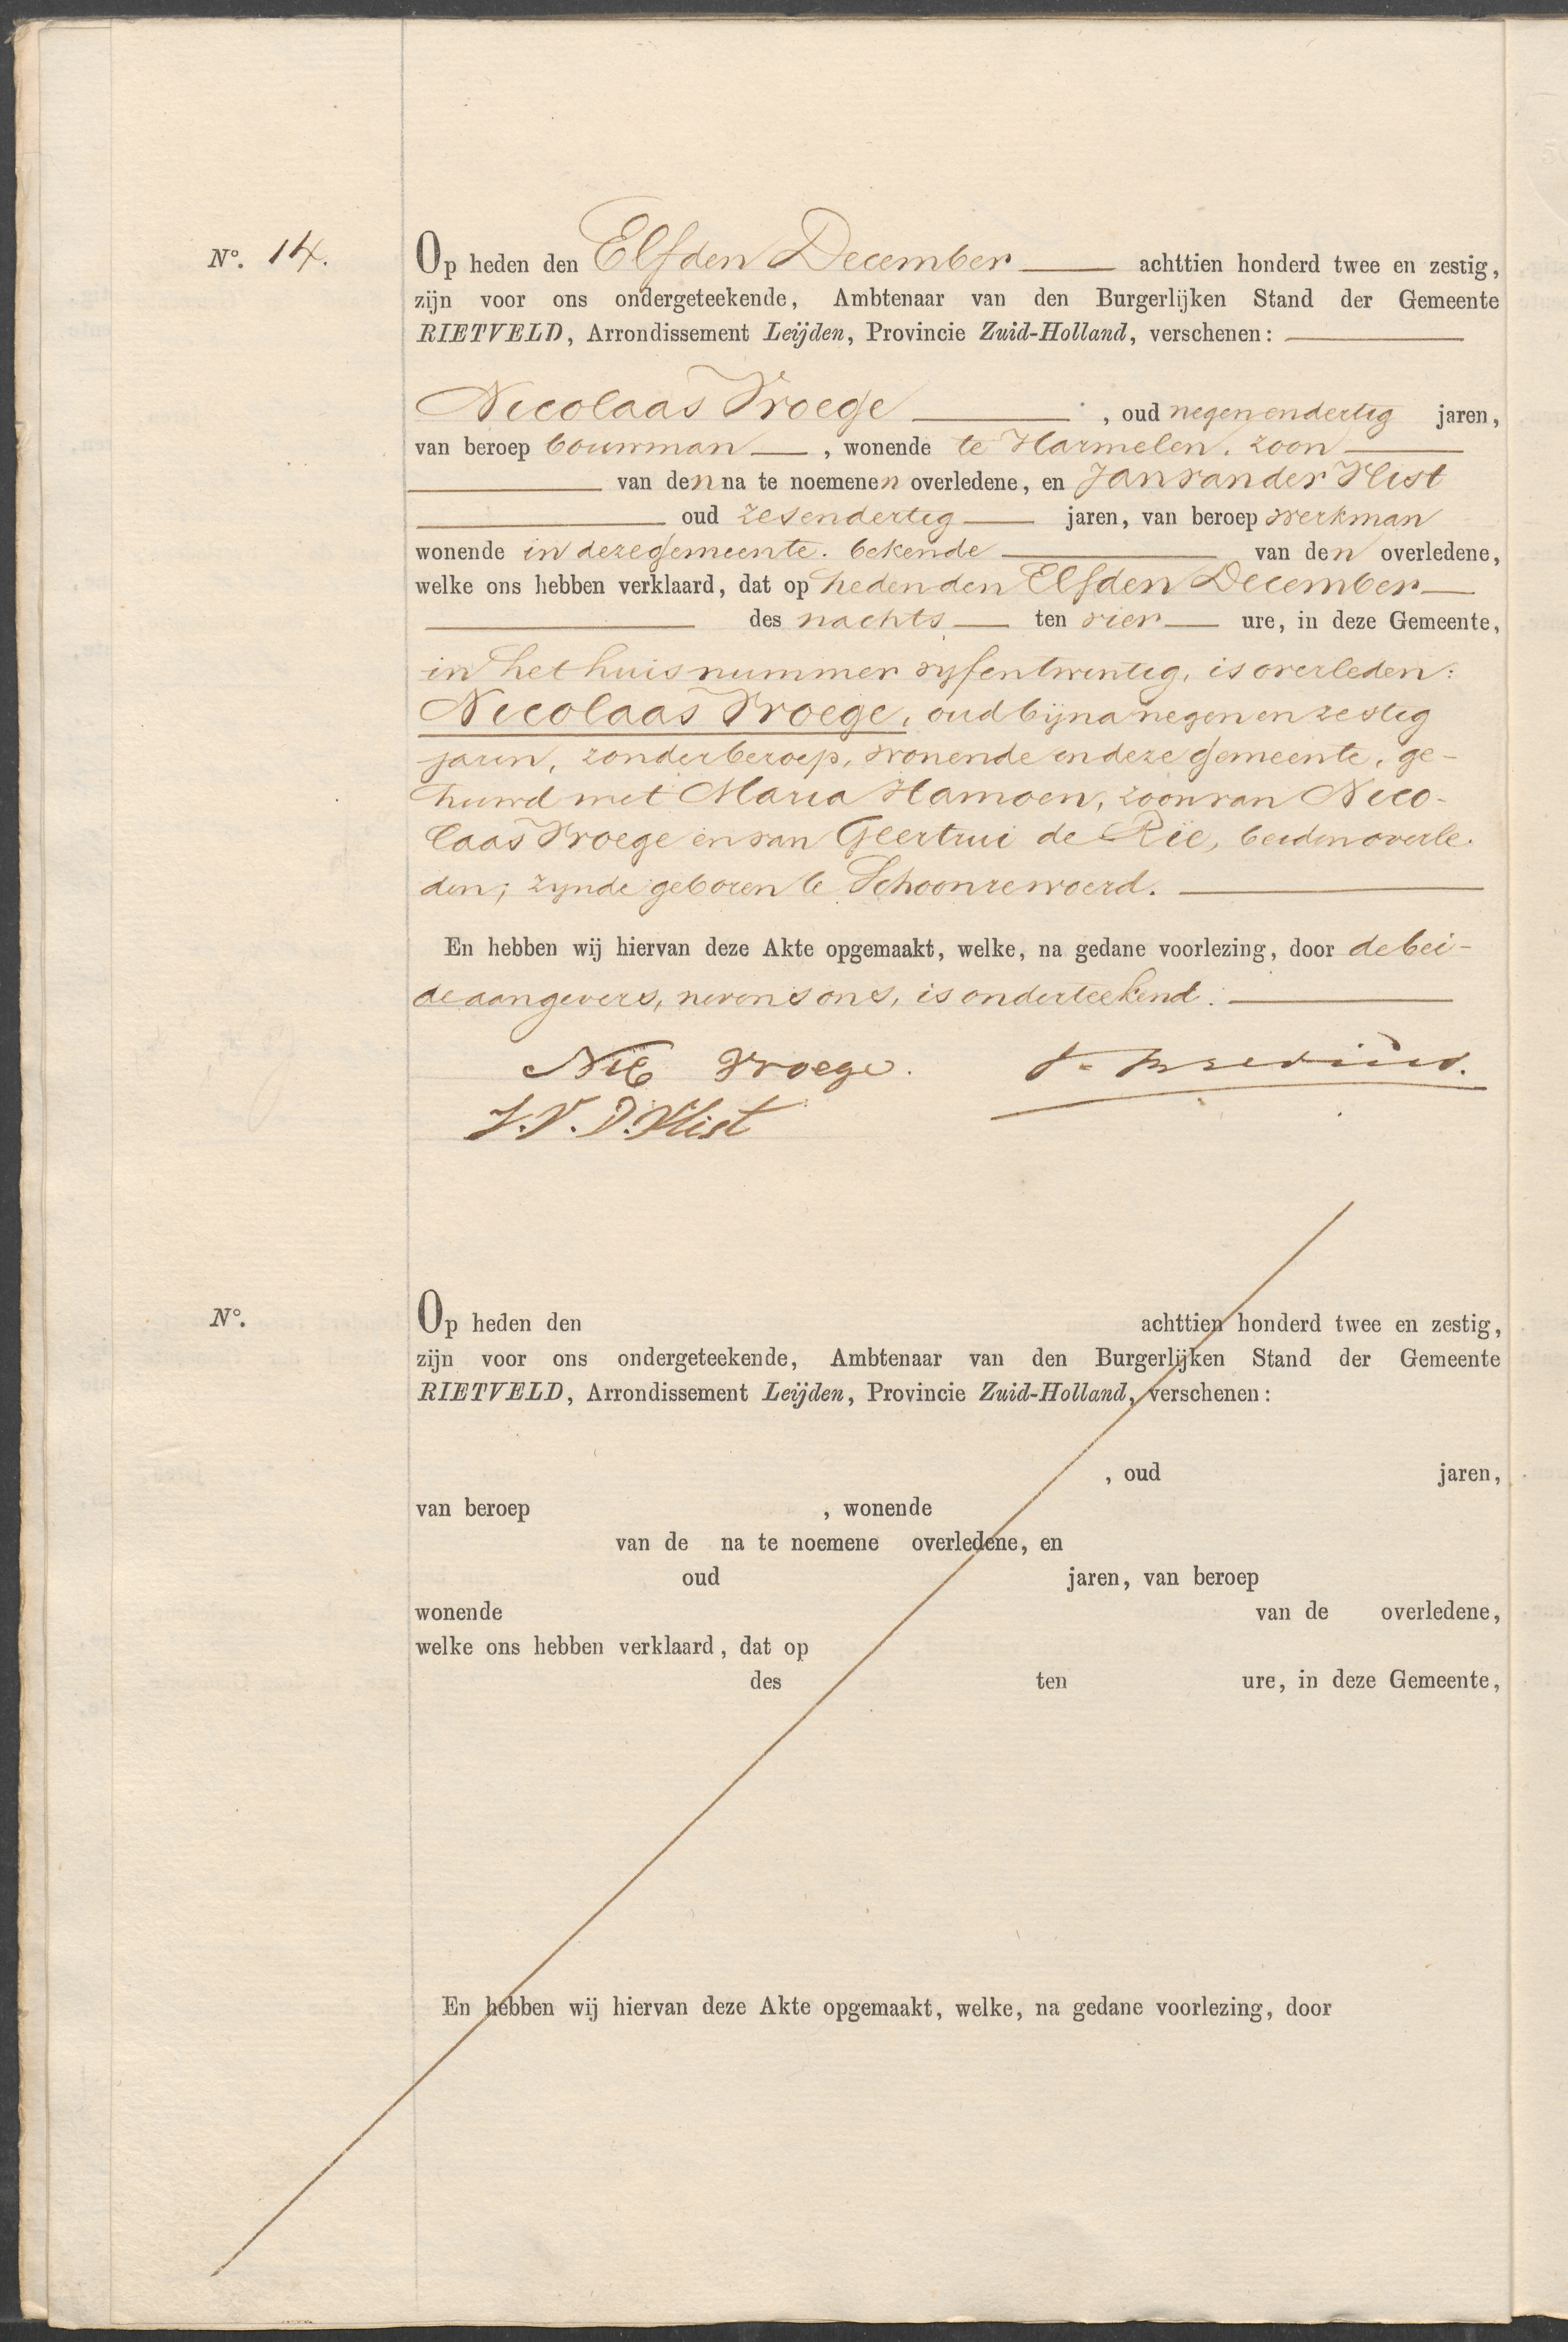 N°. 14.
Op heden den Elfden December achttien honderd twee en zestig,
zijn voor ons ondergeteekende, Ambtenaar van den Burgerlijken Stand der Gemeente
RIETVELD, Arrondissement Leijden, Provincie Zuid-Holland, verschenen:
Nicolaas Vroege, oud negenendertig jaren,
van beroep bouwman, wonende te Harmelen, zoon
van den na te noemenen overledene, en Jan van der Vlist
oud zesendertig jaren, van beroep werkman
wonende in deze gemeente. bekende van den overledene,
welke ons hebben verklaard, dat op heden den Elfden December
des nachts ten vier ure, in deze Gemeente,
in het huis nummer vyfentwintig, is overleden:
Nicolaas Vroege, oud bijna negen en zestig
jaren, zonder beroep, wonende in deze gemeente, ge-
huwd met Maria Hamoen, zoon van Nico-
laas Vroege en van Geertrui de Rie, beiden overle-
den; zynde geboren te Schoonrewoerd.
En hebben wij hiervan deze Akte opgemaakt, welke, na gedane voorlezing, door de bei-
de aangevers, nevens ons, is onderteekend.
Nic Vroege.
J. V. D. Vlist
N°.
Op heden den achttien honderd twee en zestig,
zijn voor ons ondergeteekende, Ambtenaar van den Burgerlijken Stand der Gemeente
RIETVELD, Arrondissement Leijden, Provincie Zuid-Holland, verschenen:
, oud jaren,
van beroep , wonende
van de na te noemene overledene, en
oud jaren, van beroep
wonende van de overledene,
welke ons hebben verklaard, dat op
des ten ure, in deze Gemeente,
En hebben wij hiervan deze Akte opgemaakt, welke, na gedane voorlezing, door